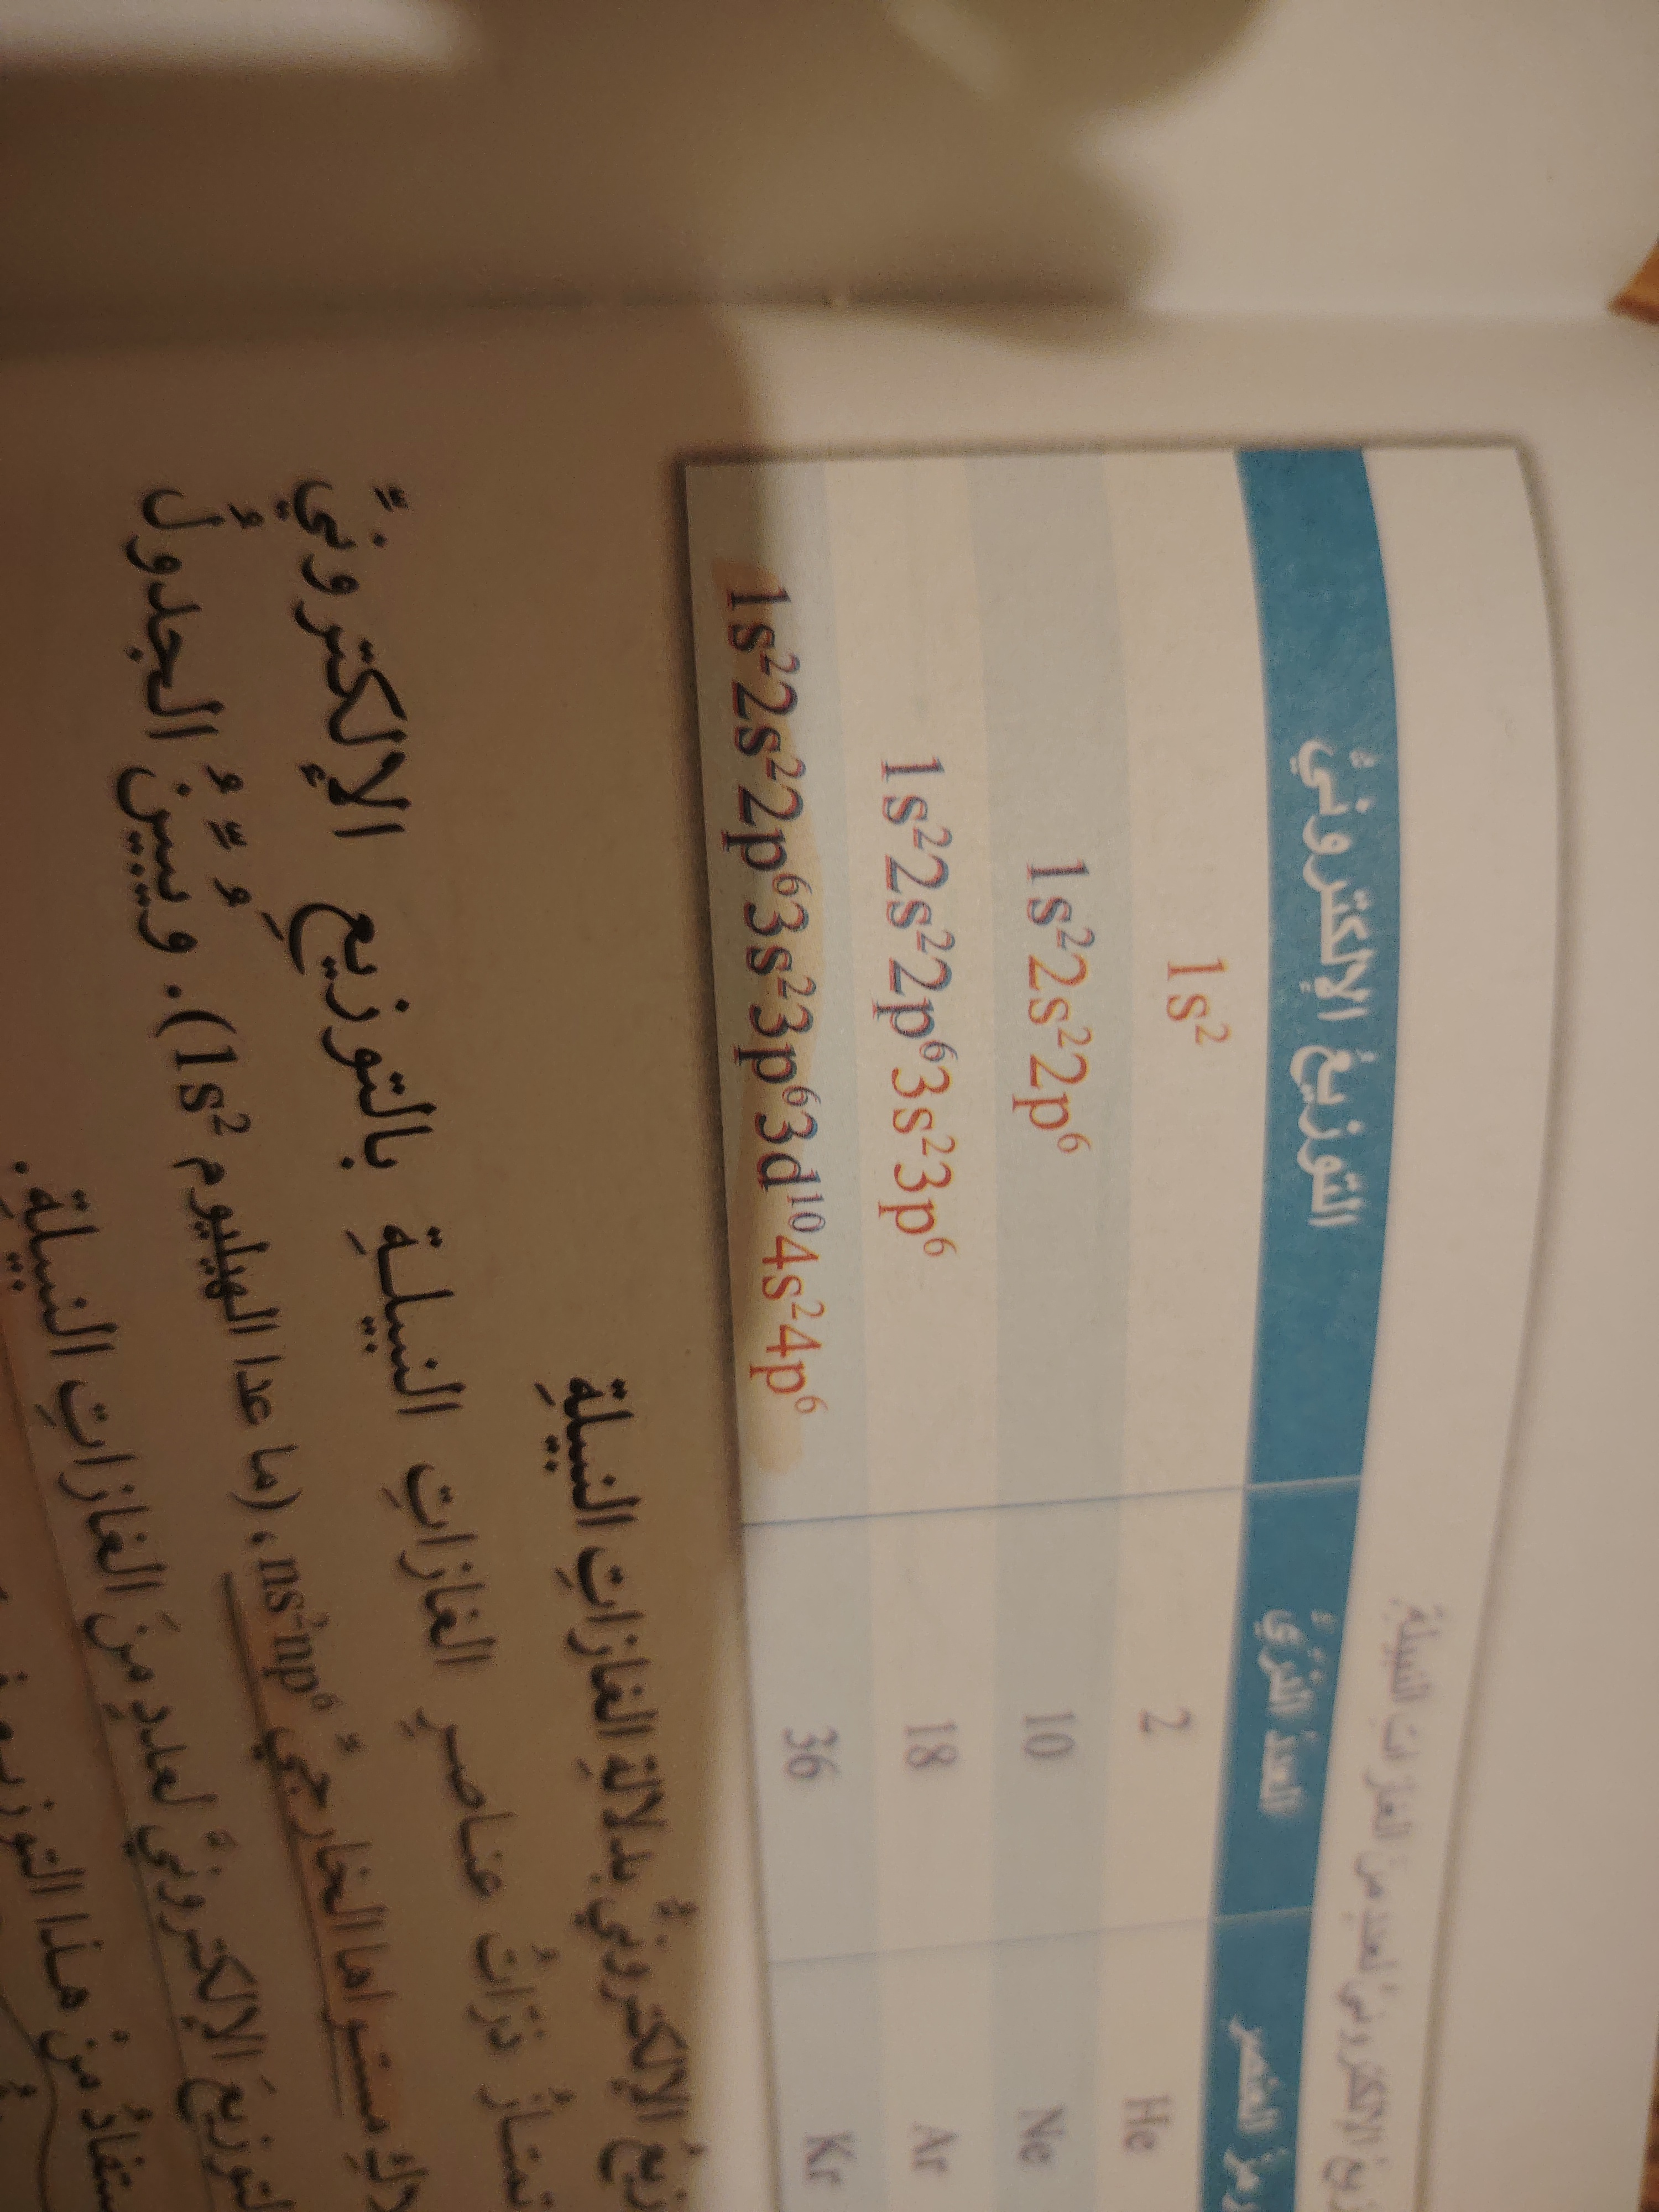 التوزيعُ الإلكترونيُّ لعددٍ منَ الغازاتِ النبيلةِ.
رمزُ العنصرِ العددُ الذرّيُّ التوزيعُ الإلكترونيُّ
He 2 1s²
Ne 10 1s²2s²2p⁶
Ar 18 1s²2s²2p⁶3s²3p⁶
Kr 36 1s²2s²2p⁶3s²3p⁶3d¹⁰4s²4p⁶
الإلكترونيُّ بدلالةِ الغازاتِ النبيلةِ
تمتازُ ذرّاتُ عناصرِ الغازاتِ النبيلةِ بالتوزيعِ الإلكترونيِّ
الخارجيِّ ns²np⁶، (ما عدا الهيليوم 1s²). ويُبيّنُ الجدولُ
الإلكترونيَّ لعددٍ منَ الغازاتِ النبيلةِ.
منْ هذا